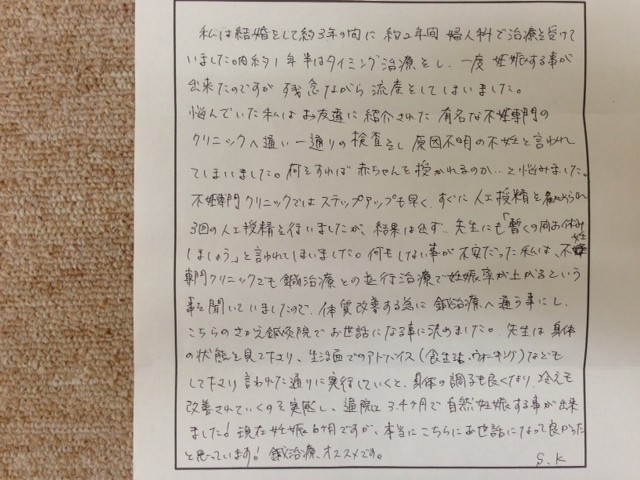 私は結婚をして約3年の間に約2年間婦人科で治療を受けて
いました。内約1年半はタイミング治療をし、一度妊娠する事が
出来たのですが残念ながら流産をしてしまいました。
悩んでいた私はお友達に紹介された有名な不妊専門の
クリニックへ通い一通りの検査をし原因不明の不妊と言われ
てしまいました。何をすれば赤ちゃんを授かれるのか…と悩みました。
不妊専門クリニックではステップアップも早く、すぐに人工授精を進められ
3回の人工授精を行いましたが、結果は出ず、先生にも「暫くの間お休み
しましょう」と言われてしまいました。何もしない事が不安だった私は、不妊
専門クリニックでも鍼治療との並行治療で妊娠率が上がるという
事を聞いていましたので、体質改善する為に鍼治療へ通う事にし、
こちらのさかえ鍼灸院でお世話になる事に決めました。先生は身体
の状態を見て下さり、生活面でのアドバイス(食生活、ウォーキング)なども
して下さり言われた通りに実行していくと、身体の調子も良くなり、冷えも
改善されていくのを実感し、通院し3.4ヶ月で自然妊娠する事が出来
ました!現在妊娠6ヶ月ですが、本当にこちらにお世話になって良かった
と思っています!鍼治療、オススメです。
S.K